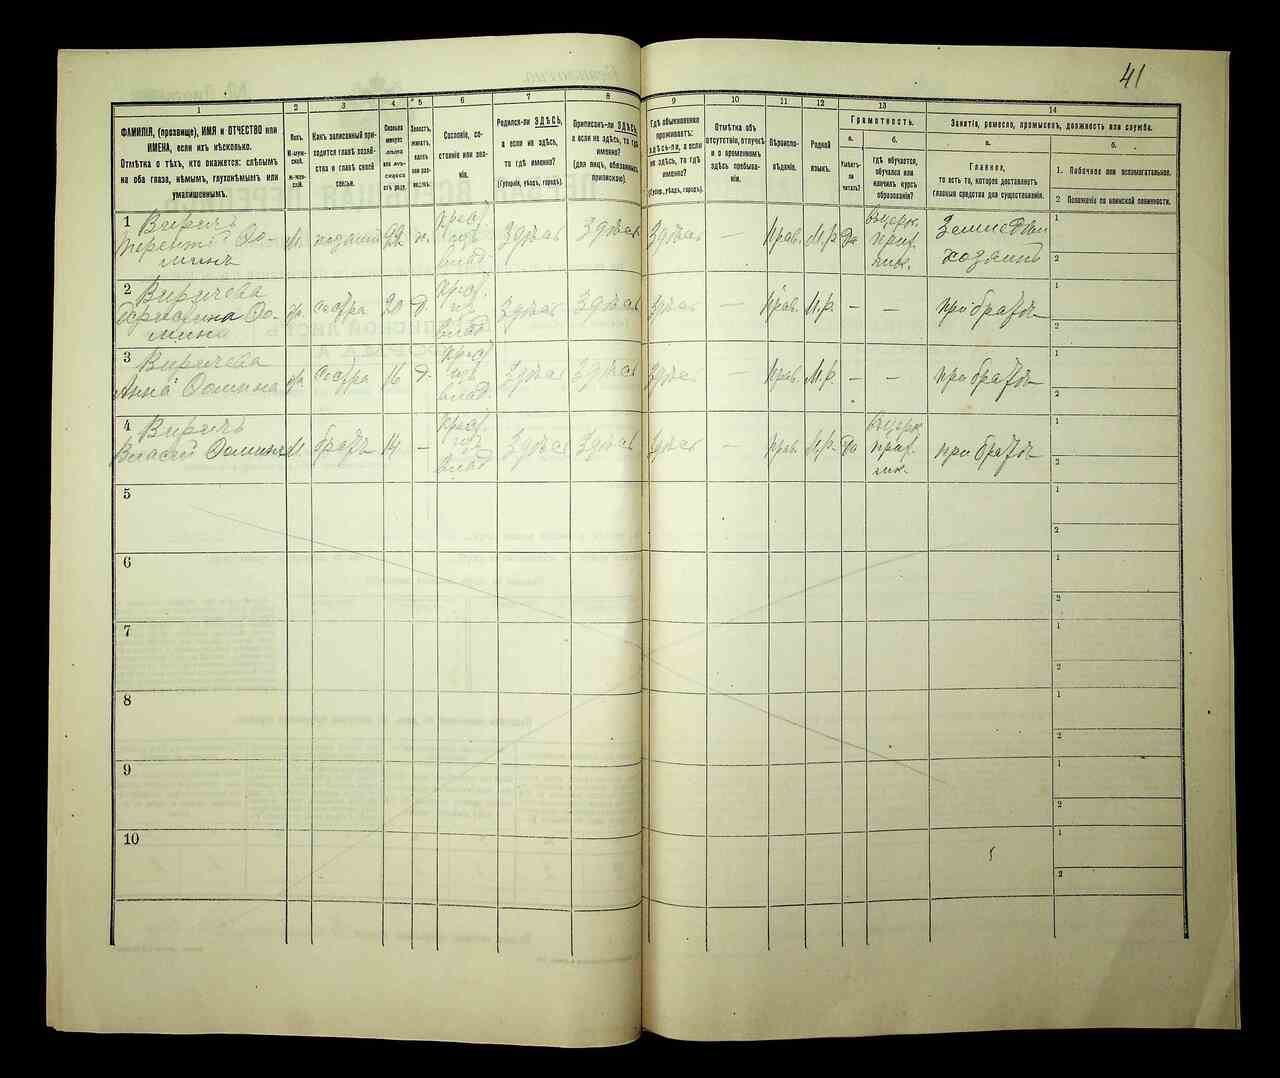 41
1 2 3 4 5 6 7 8 9 10 11 12 13 14
ФАМИЛІЯ, (прозвище), ИМЯ и ОТЧЕСТВО или
ИМЕНА, если ихъ нѣсколько.
Отмѣтка о тѣхъ, кто окажется: слѣпымъ
на оба глаза, нѣмымъ, глухонѣмымъ или
умалишеннымъ.
Полъ.
М-муж-
ской.
Ж-жен-
скій.
Какъ записанный при-
ходится главѣ хозяй-
ства и главѣ своей
семьи.
Сколько
минуло
лѣтъ
Холостъ,
женатъ,
вдовъ
или раз-
веденъ.
Сословіе, со-
стояніе или зва-
ніе.
Родился-ли ЗДѢСЬ,
а если не здѣсь,
то гдѣ именно?
(Губернія, уѣздъ, городъ).
Приписанъ-ли ЗДѢСЬ,
а если не здѣсь, то гдѣ
именно?
(для лицъ, обязанныхъ
припискою).
Гдѣ обыкновенно
проживаетъ:
ЗДѢСЬ-ли, а если
не здѣсь, то гдѣ
именно?
(Губер., уѣздъ, городъ).
Отмѣтка объ
отсутствіи, отлучкѣ
и о временномъ
здѣсь пребыва-
ніи.
Вѣроиспо-
вѣданіе.
Родной
языкъ.
Грамотность.
а. б.
Умѣетъ-
ли
читать?
гдѣ обучается,
обучался или
кончилъ курсъ
образованія?
Занятіе, ремесло, промыселъ, должность или служба.
а. б.
Главное,
то есть то, которое доставляетъ
главныя средства для существованія.
1. Побочное или вспомогательное.
2 Положеніе по воинской повинности.
1 Вирачъ
Терентій Фо-
минъ
М. хозяинъ 22 х. Крест. изъ влад. Здѣсь Здѣсь Здѣсь — Прав. М.р. Да въ церк. прих. шк. Земледѣл. хозяинъ
1
2
2 Вирачева
Фо-
мина
ж. сестра 20 д. Крест. изъ влад. Здѣсь Здѣсь Здѣсь — Прав. М.р. — — при братѣ
1
2
3 Вирачева
Анна Фомина
ж. сестра 16 д. Крест. изъ влад. Здѣсь Здѣсь Здѣсь — Прав. М.р. — — при братѣ
1
2
4 Вирачъ
Власей Фоминъ
М. братъ 14 — Крест. изъ влад. Здѣсь Здѣсь Здѣсь — Прав. М.р. Да въ церк. прих. шк. при братѣ
1
2
5
1
2
6
1
2
7
1
2
8
1
2
9
1
2
10
1
2